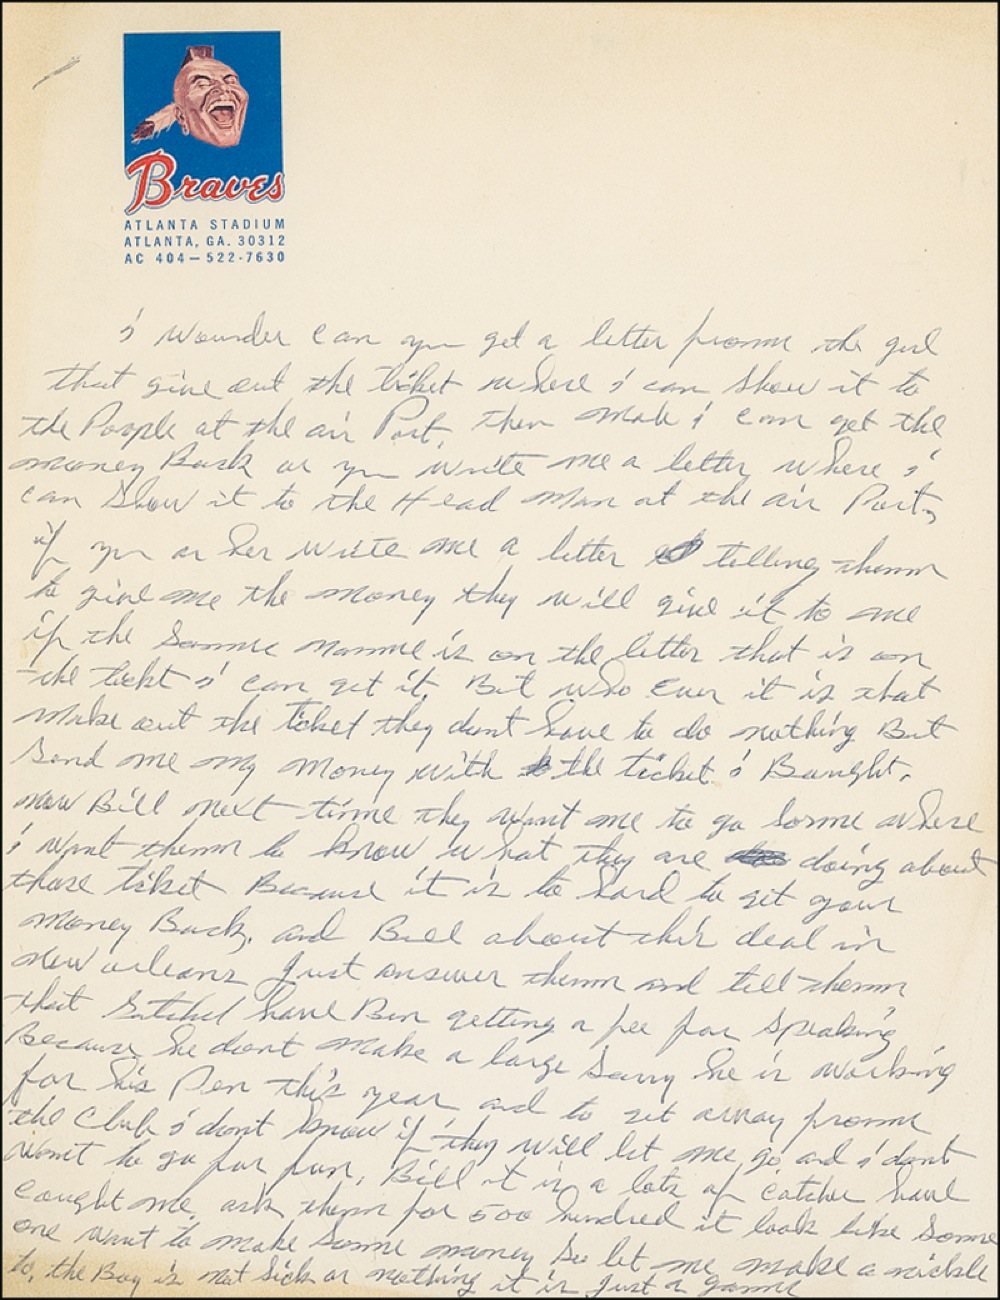 Braves
ATLANTA STADIUM
ATLANTA, GA. 30312
AC 404—522-7630
i wounder can you get a letter fromm the girl
that give out the ticket where i can show it to
the People at the air Port, then mab i can get the
money Back or you write me a letter where i
can show it to the Head man at the air Port,
if you or her write me a letter telling themm
to give me the money they will give it to me
if the Samme namme is on the letter that is on
the tickt i can get it. But who Ever it is that
make out the ticket they dont have to do nothing But
Send me my money with the ticket i Baught.
now Bill next timme they want me to go Somme where
i want themm to know what they are doing about
those ticket Because it is to hard to get your
money Back, and Bill about this deal in
new orleans Just answer themm and tell themm
that Satchel have Ben getting a fee for Speaking
Because he dont make a large Sarry he is working
for his Pen this year and to get away fromm
the Club i dont know if they will let me go and i dont
want to go for fun, Bill it is a lots of catcher have
cought me, ask themm for 500 hundred it look like Some
one want to make Somme money So let me make a nickle
to, the Boy is not Sick or nothing it is Just a gamme